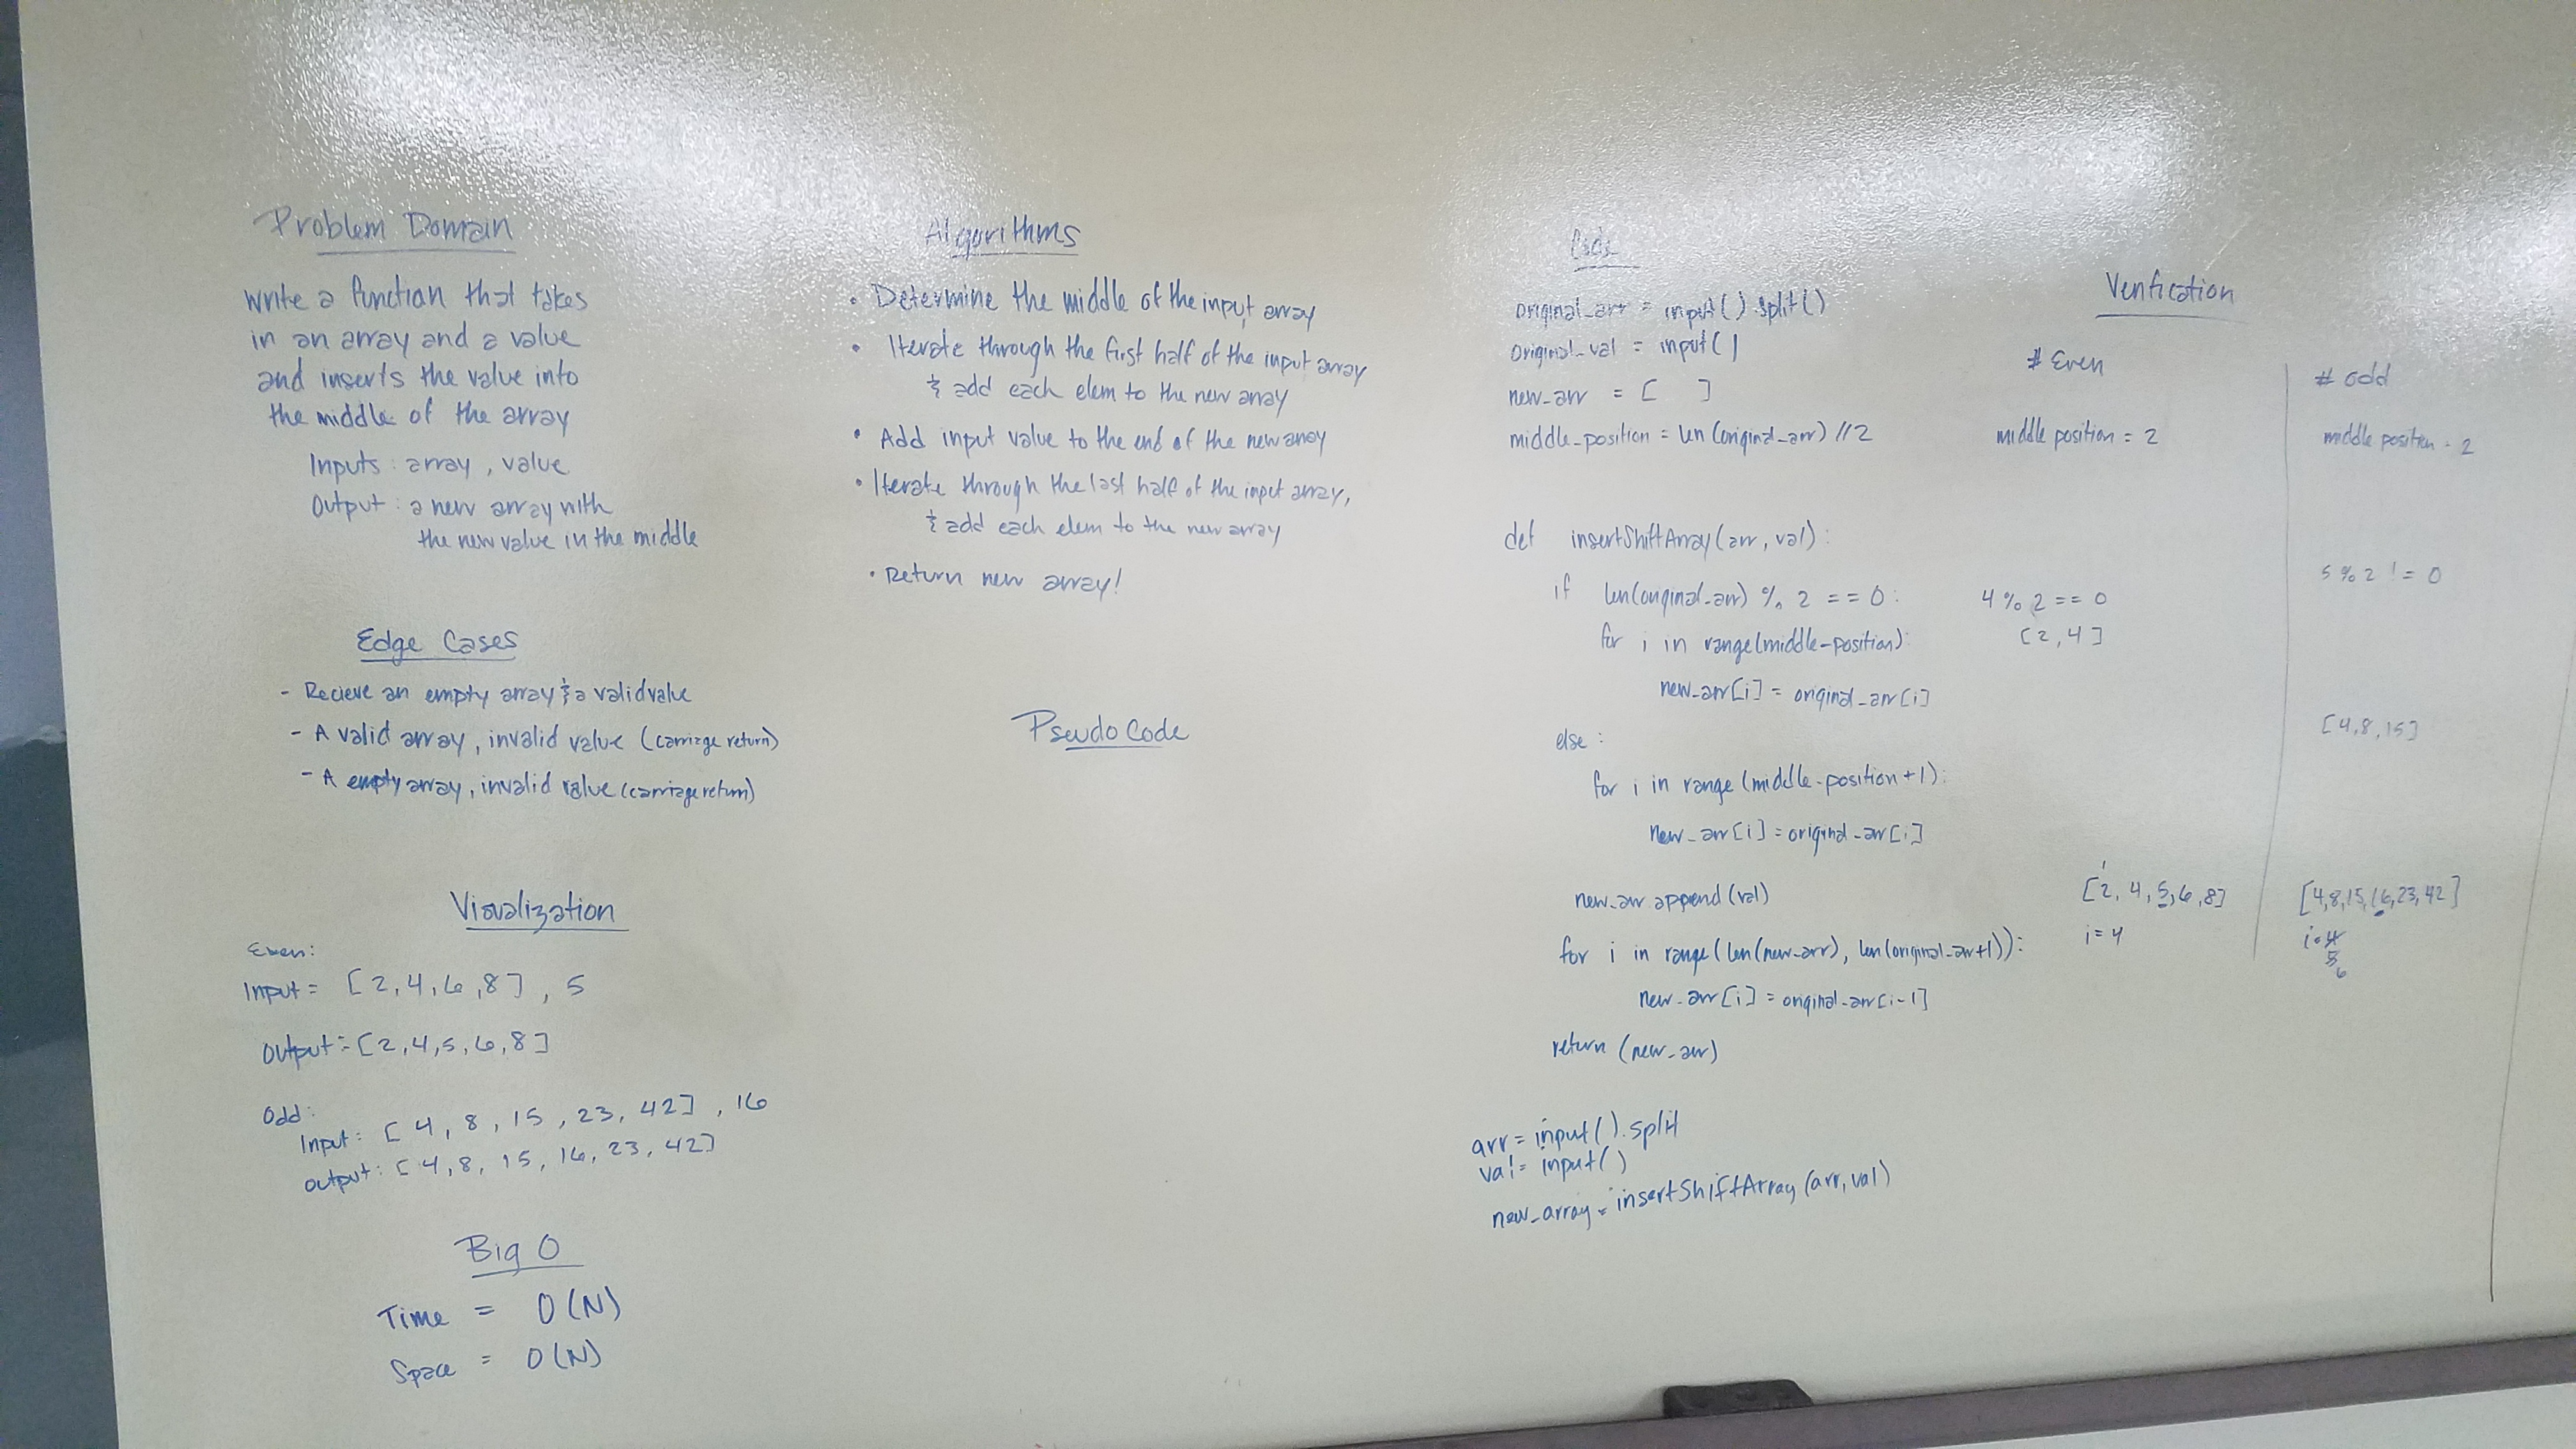 Problem Domain
Write a function that takes
in an array and a value
and inserts the value into
the middle of the array
Inputs : array , value
Output : a new array with
the new value in the middle
Edge Cases
- Recieve an empty array & a valid value
- A valid array , invalid value (carriage return)
- A empty array , invalid value (carriage return)
Visualization
Even:
Input = [2,4,6,8] , 5
Output = [2,4,5,6,8]
Odd:
Input: [4, 8, 15, 23, 42] , 16
output: [4,8, 15, 16, 23, 42]
Big O
Time = O(N)
Space = O(N)
Algorithms
• Determine the middle of the input array
• Iterate through the first half of the input array
& add each elem to the new array
• Add input value to the end of the new array
• Iterate through the last half of the input array,
& add each elem to the new array
• Return new array!
Pseudo Code
Code
original_arr = input().split()
original_val = input()
new_arr = [ ]
middle_position = len(original_arr) //2
def insertShiftArray(arr, val):
if len(original_arr) % 2 == 0:
for i in range(middle-position):
new_arr[i] = original_arr[i]
else :
for i in range (middle-position+1):
new_arr[i] = original_arr[i]
new_arr append(val)
for i in range(len(new_arr), len(original_arr+1)):
new_arr[i] = original_arr[i-1]
return (new_arr)
arr = input().split
val = input()
new_array = insertShiftArray (arr, val)
Verification
# Even
middle position = 2
4 % 2 == 0
[2,4]
[2, 4, 5, 6, 8]
i = 4
# odd
middle position = 2
5 % 2 != 0
[4,8,15]
[4,8,15,16,23,42]
i = 4
5
6